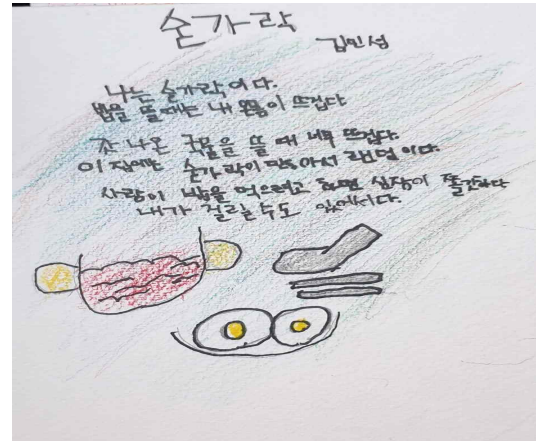 숟가락
김민성
나는 숟가락이다.
밥을 뜰때는 내 몸이 뜨겁다
갓 나온 국물을 뜰 때 너무 뜨겁다.
이 집에는 숟가락이 많아서 랜덤이다.
사람이 밥을 먹으려고 하면 심장이 쫄깃하다
내가 걸릴수도 있어서다.